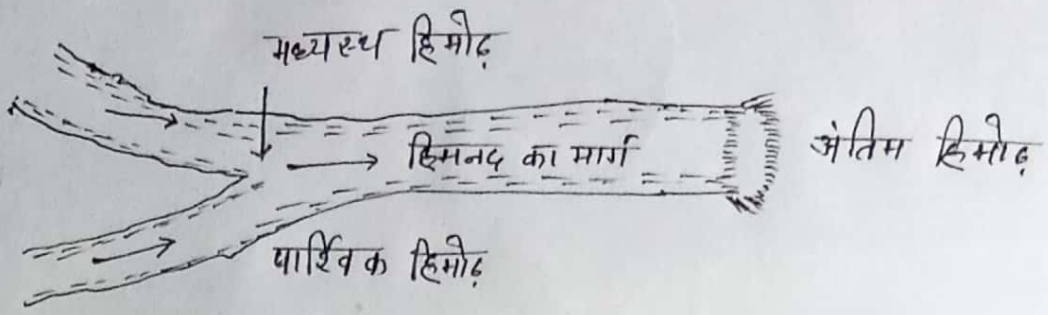 मध्यस्थ हिमोढ़
हिमनद का मार्ग
अंतिम हिमोढ़
पार्श्विक हिमोढ़